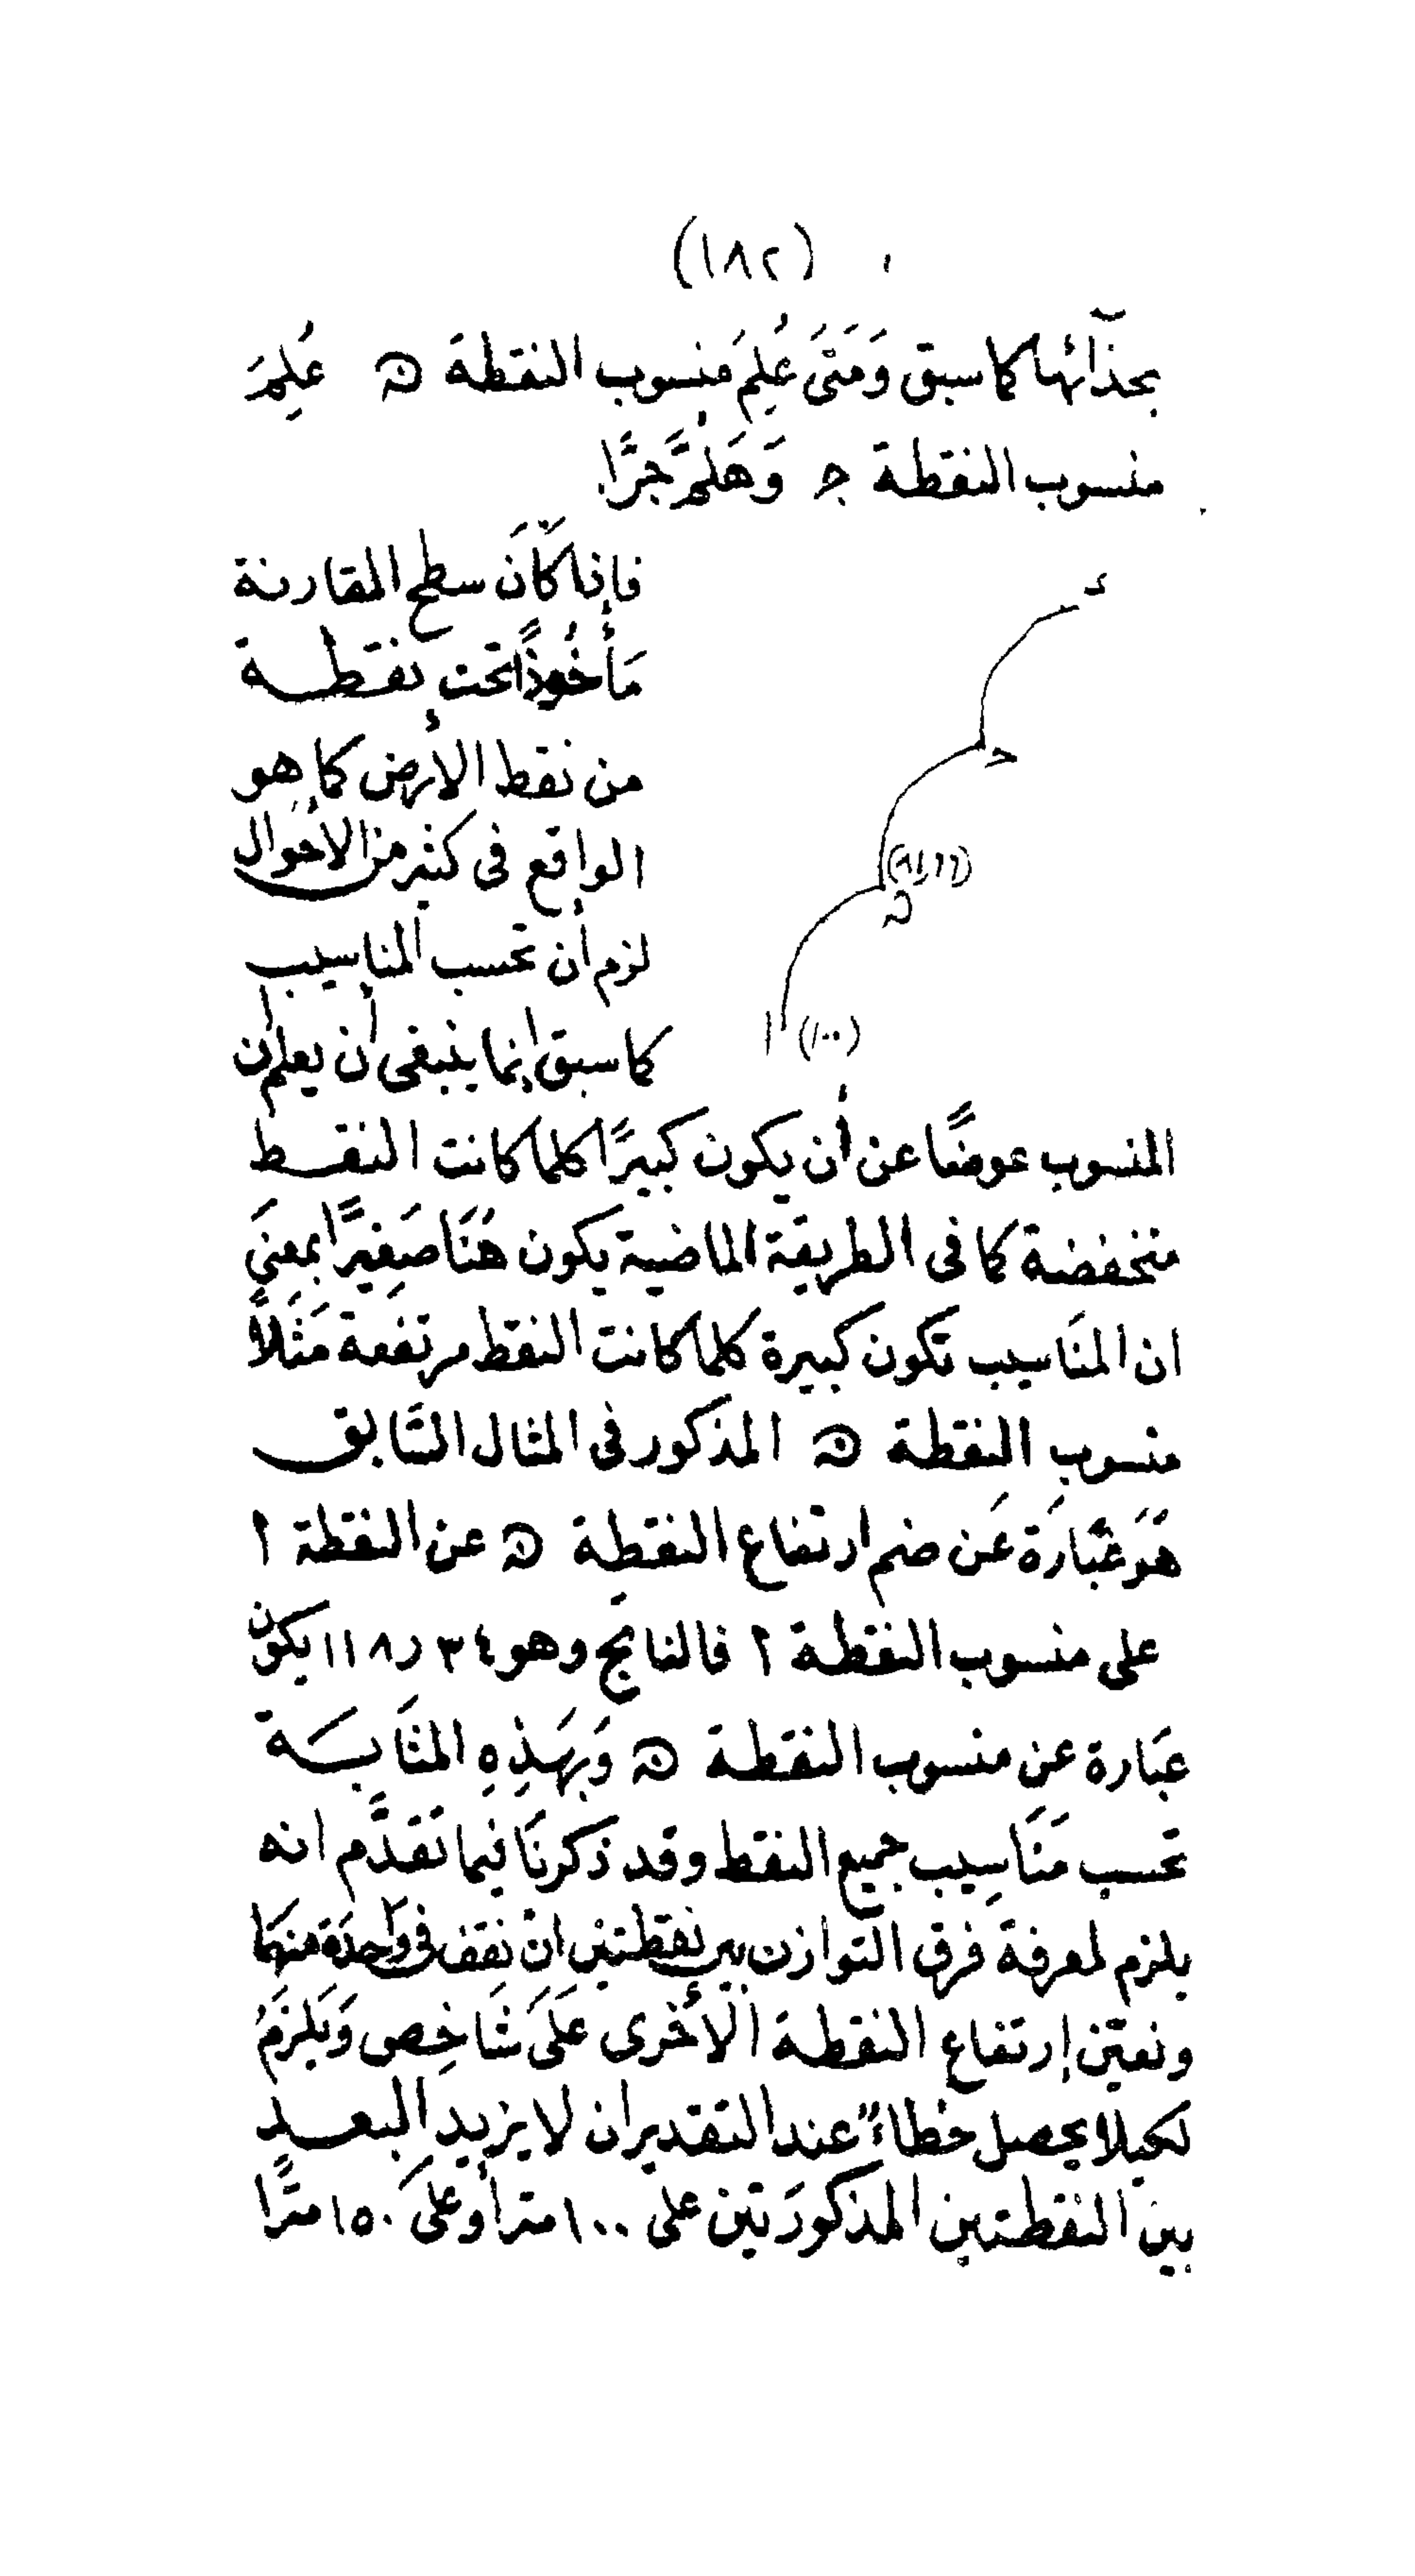 (١٨٢)
بحذآئها كما سبق وَمَتَى عُلِمَ منسوب النقطة ﻪ عُلِمَ
منسوب النقطة ج وَهَلُمَّ جرًّا.
فإذا كانَ سطح المقارنة
مَأخُوذًا تحت نقطة
من نقط الأرض كما هو
الواقع فى كثير من الأحوال
لزم أن تحسب المناسيب
كما سبق إنما ينبغى أن يعلم أن
د
ج
ا (١٠٠)
المنسوب عوضًا عن أن يكون كبيرًا كلما كانت النقط
منخفضة كما فى الطريقة الماضية يكون هُنَا صَغِيرًا بمعنىَ
ان المنَاسيب تكون كبيرة كلما كانت النقط مرتفعة مَثَلاً
منسوب النقطة ﻪ المذكور فى المثال السَّابق
هَوَ عبَارَة عَن ضم ارتفاع النقطة ﻪ عن النقطة ٢
على منسوب النقطة ٢ فالناتج وهو ٣٤ر١١٨ يكون
عبَارة عن منسوب النقطة ﻪ وَبهَذِهِ المثَابَة
تحسب مَنَاسِيب جميع النقط وقد ذكرنَا فيما تَقدَّم انه
يلزم لمعرفة فرق التوازن بين نقطتين ان نقف فى وَاحدَة منهَما
ونعيّن إرتفاع النقطة الأخرى عَلَى شَاخِص وَيَلزَمُ
لكيلا يحصل خطاءٌ عند التقدير ان لا يزيد البعد
بين النقطتين المذكورَتين على ١٠٠ مترأ وعلىَ ١٥٠ مترًا